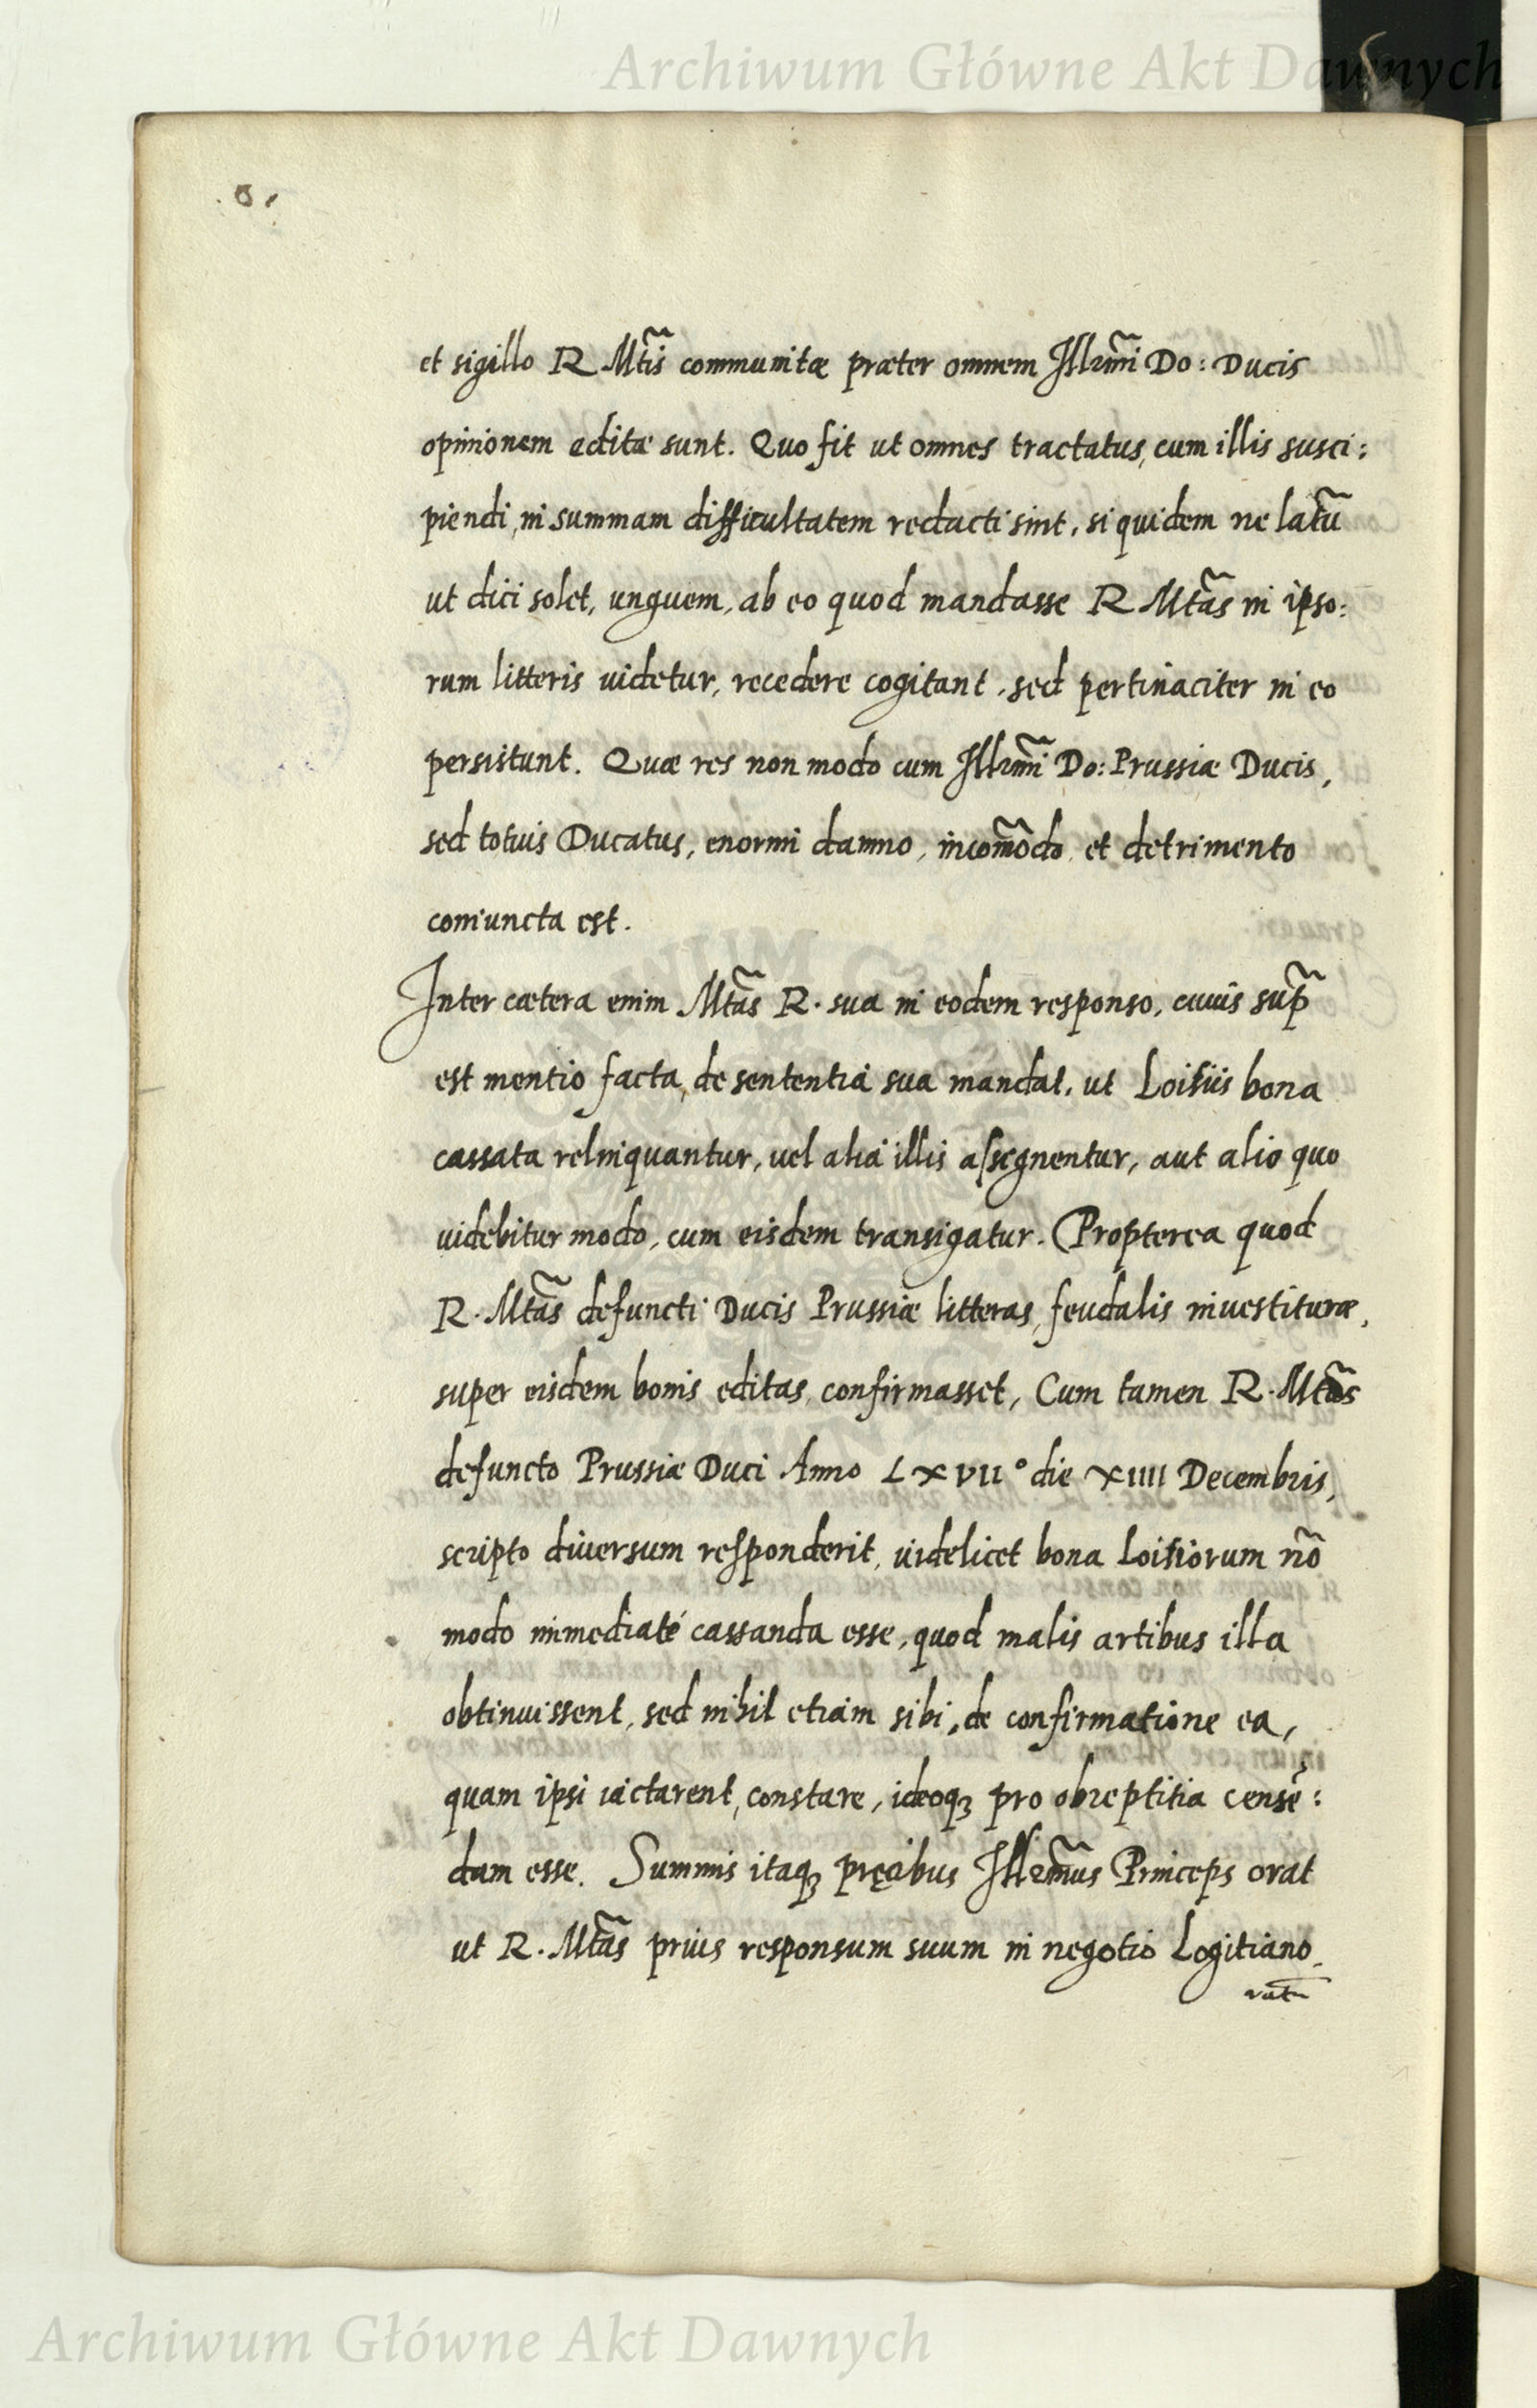 Archiwum Główne Akt Dawnych
et sigillo R Mt̃is communitæ præter omnem Illm̃i Do: Ducis
opinionem editæ sunt. Quo fit ut omnes tractatus, cum illis susci:
piendi, in summam difficultatem redacti sint, siquidem ne latũ
ut dici solet, unguem, ab eo quod mandasse R Mt̃as in ipso:
rum litteris uidetur, recedere cogitant, sed pertinaciter in eo
persistunt. Quæ res non modo cum Illm̃i Do: Prussiæ Ducis,
sed totius Ducatus, enormi damno, incom̃odo et detrimento
coniuncta est.
Inter cætera enim Mt̃as R. sua in eodem responso, cuius sup̃
est mentio facta, de sententia sua mandat, ut Loisiis bona
cassata relinquantur, uel alia illis assignentur, aut alio quo
uidebitur modo, cum eisdem transigatur. Propterea quod
R. Mt̃as defuncti Ducis Prussiæ litteras, feudalis inuestituræ,
super eisdem bonis editas, confirmasset, Cum tamen R. Mt̃as
defuncto Prussiæ Duci Anno LXVII° die XIIII Decembris,
scripto diuersum responderit, uidelicet bona Loisiorum nõ
modo immediaté cassanda esse, quod malis artibus illa
obtinuissent, sed nihil etiam sibi, de confirmatione ea,
quam ipsi iactarent, constare, ideoqꝫ pro obreptitia censẽ:
dam esse. Summis itaqꝫ pręcibus Illm̃us Princeps orat
ut R. Mt̃as prius responsum suum in negotio Logitiano
Archiwum Główne Akt Dawnych